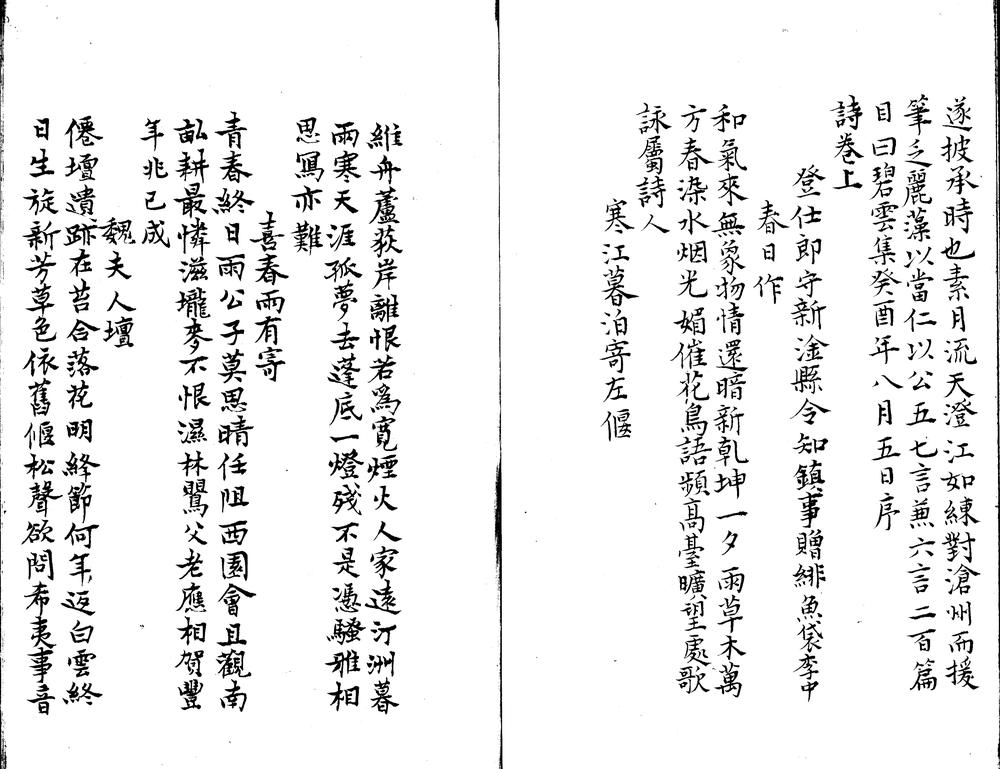 遂披承時也素月流天澄江如練對滄州而援
筆乏麗藻以當仁以公五七言蕪六言二百篇
目曰碧雲集癸酉年八月五日序
詩卷上
登仕郎守新淦縣令知鎮事贈緋魚袋李中
春日作
和氣來無象物情還暗新乾坤一夕雨草木萬
方春染水烟光媚催花鳥語頻高臺曠望處歌
詠屬詩人
寒江暮泊寄左偃
維舟蘆荻岸離恨若為寬煙火人家遠汀洲暮
雨寒天涯孤夢去蓬底一燈殘不是憑騷雅相
思寫亦難
喜春雨有寄
青春終日雨公子莫思晴任阻西園會且觀南
畝耕最憐滋壠麥不恨濕林鸎父老應相賀豐
年兆已成
魏夫人壇
僊壇遺跡在苔合落花明絳節何年返白雲終
日生旋新芳草色依舊偃松聲欲問希夷事音